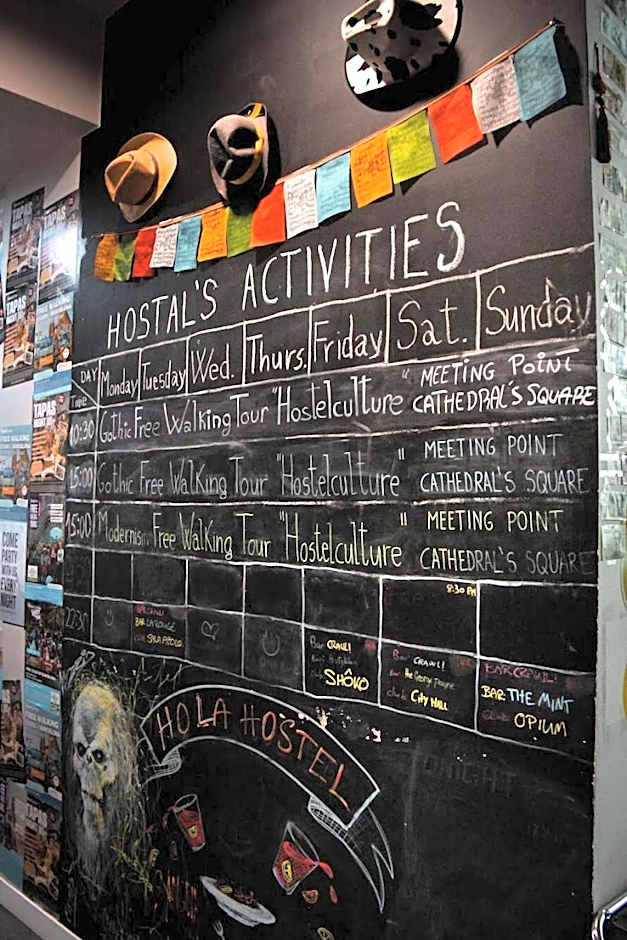 HOSTAL'S ACTIVITIES
DAY Monday Tuesday Wed. Thurs. Friday Sat. Sunday
Time
10:30 Gothic Free Walking Tour "Hostelculture" MEETING POINT
CATHEDRAL'S SQUARE
15:00 Gothic Free Walking Tour "Hostelculture" MEETING POINT
CATHEDRAL'S SQUARE
15:00 Modernism Free Walking Tour "Hostelculture" MEETING POINT
CATHEDRAL'S SQUARE
8:30 PM
22:30
BAR LA ROUGE
SALA APOLO
Bar CRAWL!
SHÔKO
Bar CRAWL!
Bar The George Payne
Club CITY HALL
BARCRAWL!
BAR THE MINT
CLUB OPIUM
HOLA HOSTEL
TONIGHT
TAPAS
TAPAS
COME
PARTY
WITH US
EVERY
NIGHT